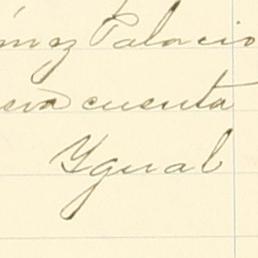 ómez Palacio
eva cuenta
Ygual